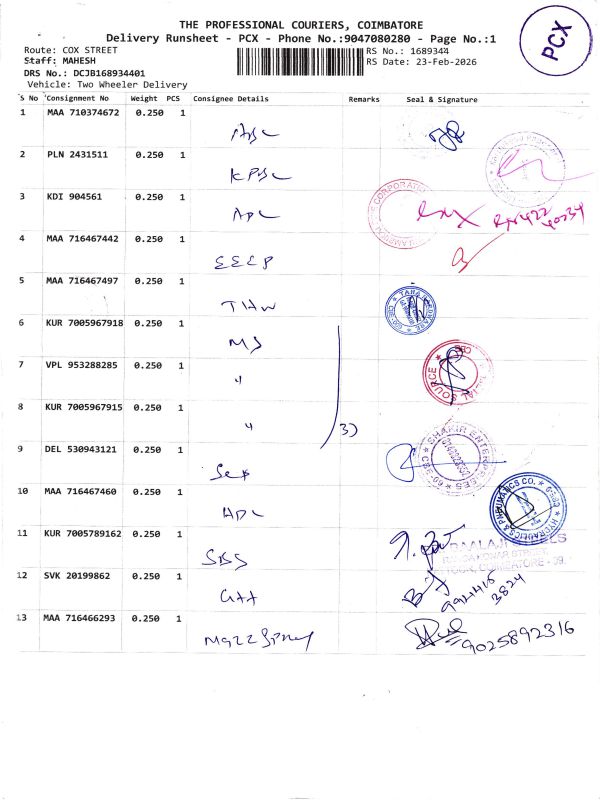 THE PROFESSIONAL COURIERS, COIMBATORE
Delivery Runsheet - PCX - Phone No.:9047080280 - Page No.:1
PCX
Route: COX STREET
RS No.: 1689344
Staff: MAHESH
RS Date: 23-Feb-2026
DRS No.: DCJB168934401
Vehicle: Two Wheeler Delivery
S No Consignment No Weight PCS Consignee Details Remarks Seal & Signature
1 MAA 710374672 0.250 1
2 PLN 2431511 0.250 1
3 KDI 904561 0.250 1 APL
4 MAA 716467442 0.250 1
5 MAA 716467497 0.250 1 THW
6 KUR 7005967918 0.250 1 MS
7 VPL 953288285 0.250 1 "
8 KUR 7005967915 0.250 1 " 3)
9 DEL 530943121 0.250 1
10 MAA 716467460 0.250 1 APL
11 KUR 7005789162 0.250 1 SBS
12 SVK 20199862 0.250 1
13 MAA 716466293 0.250 1
9025892316